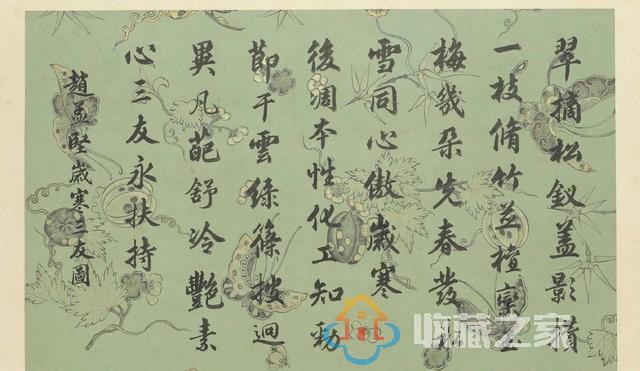 翠摘松釵蓋影攢
一枝脩竹並檀欒玉
梅幾朵先春發
雪同心傲歲寒
後凋本性化工知勁
節干雲綠篠披迥
異凡葩舒冷艷素
心三友永扶持
趙孟堅歲寒三友圖
收藏之家